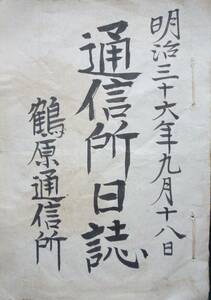 明治三十六年九月十八日
通信所日誌
鶴原通信所